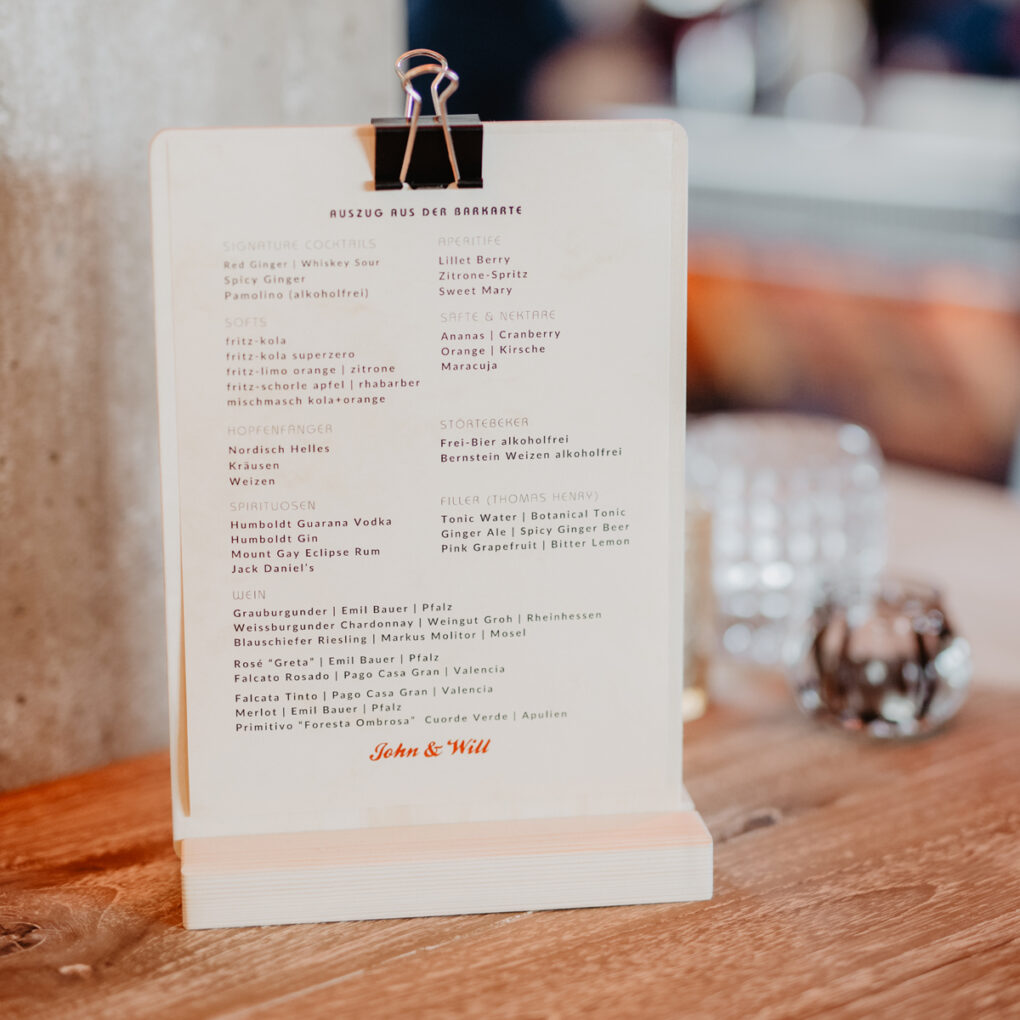 AUSZUG AUS DER BARKARTE
SIGNATURE COCKTAILS
Red Ginger | Whiskey Sour
Spicy Ginger
Pamolino (alkoholfrei)
APERITIFE
Lillet Berry
Zitrone-Spritz
Sweet Mary
SOFTS
fritz-kola
fritz-kola superzero
fritz-limo orange | zitrone
fritz-schorle apfel | rhabarber
mischmasch kola+orange
SÄFTE & NEKTARE
Ananas | Cranberry
Orange | Kirsche
Maracuja
HOPFENFÄNGER
Nordisch Helles
Kräusen
Weizen
STÖRTEBEKER
Frei-Bier alkoholfrei
Bernstein Weizen alkoholfrei
SPIRITUOSEN
Humboldt Guarana Vodka
Humboldt Gin
Mount Gay Eclipse Rum
Jack Daniel's
FILLER (THOMAS HENRY)
Tonic Water | Botanical Tonic
Ginger Ale | Spicy Ginger Beer
Pink Grapefruit | Bitter Lemon
WEIN
Grauburgunder | Emil Bauer | Pfalz
Weissburgunder Chardonnay | Weingut Groh | Rheinhessen
Blauschiefer Riesling | Markus Molitor | Mosel
Rosé "Greta" | Emil Bauer | Pfalz
Falcato Rosado | Pago Casa Gran | Valencia
Falcata Tinto | Pago Casa Gran | Valencia
Merlot | Emil Bauer | Pfalz
Primitivo "Foresta Ombrosa" Cuorde Verde | Apulien
John & Will